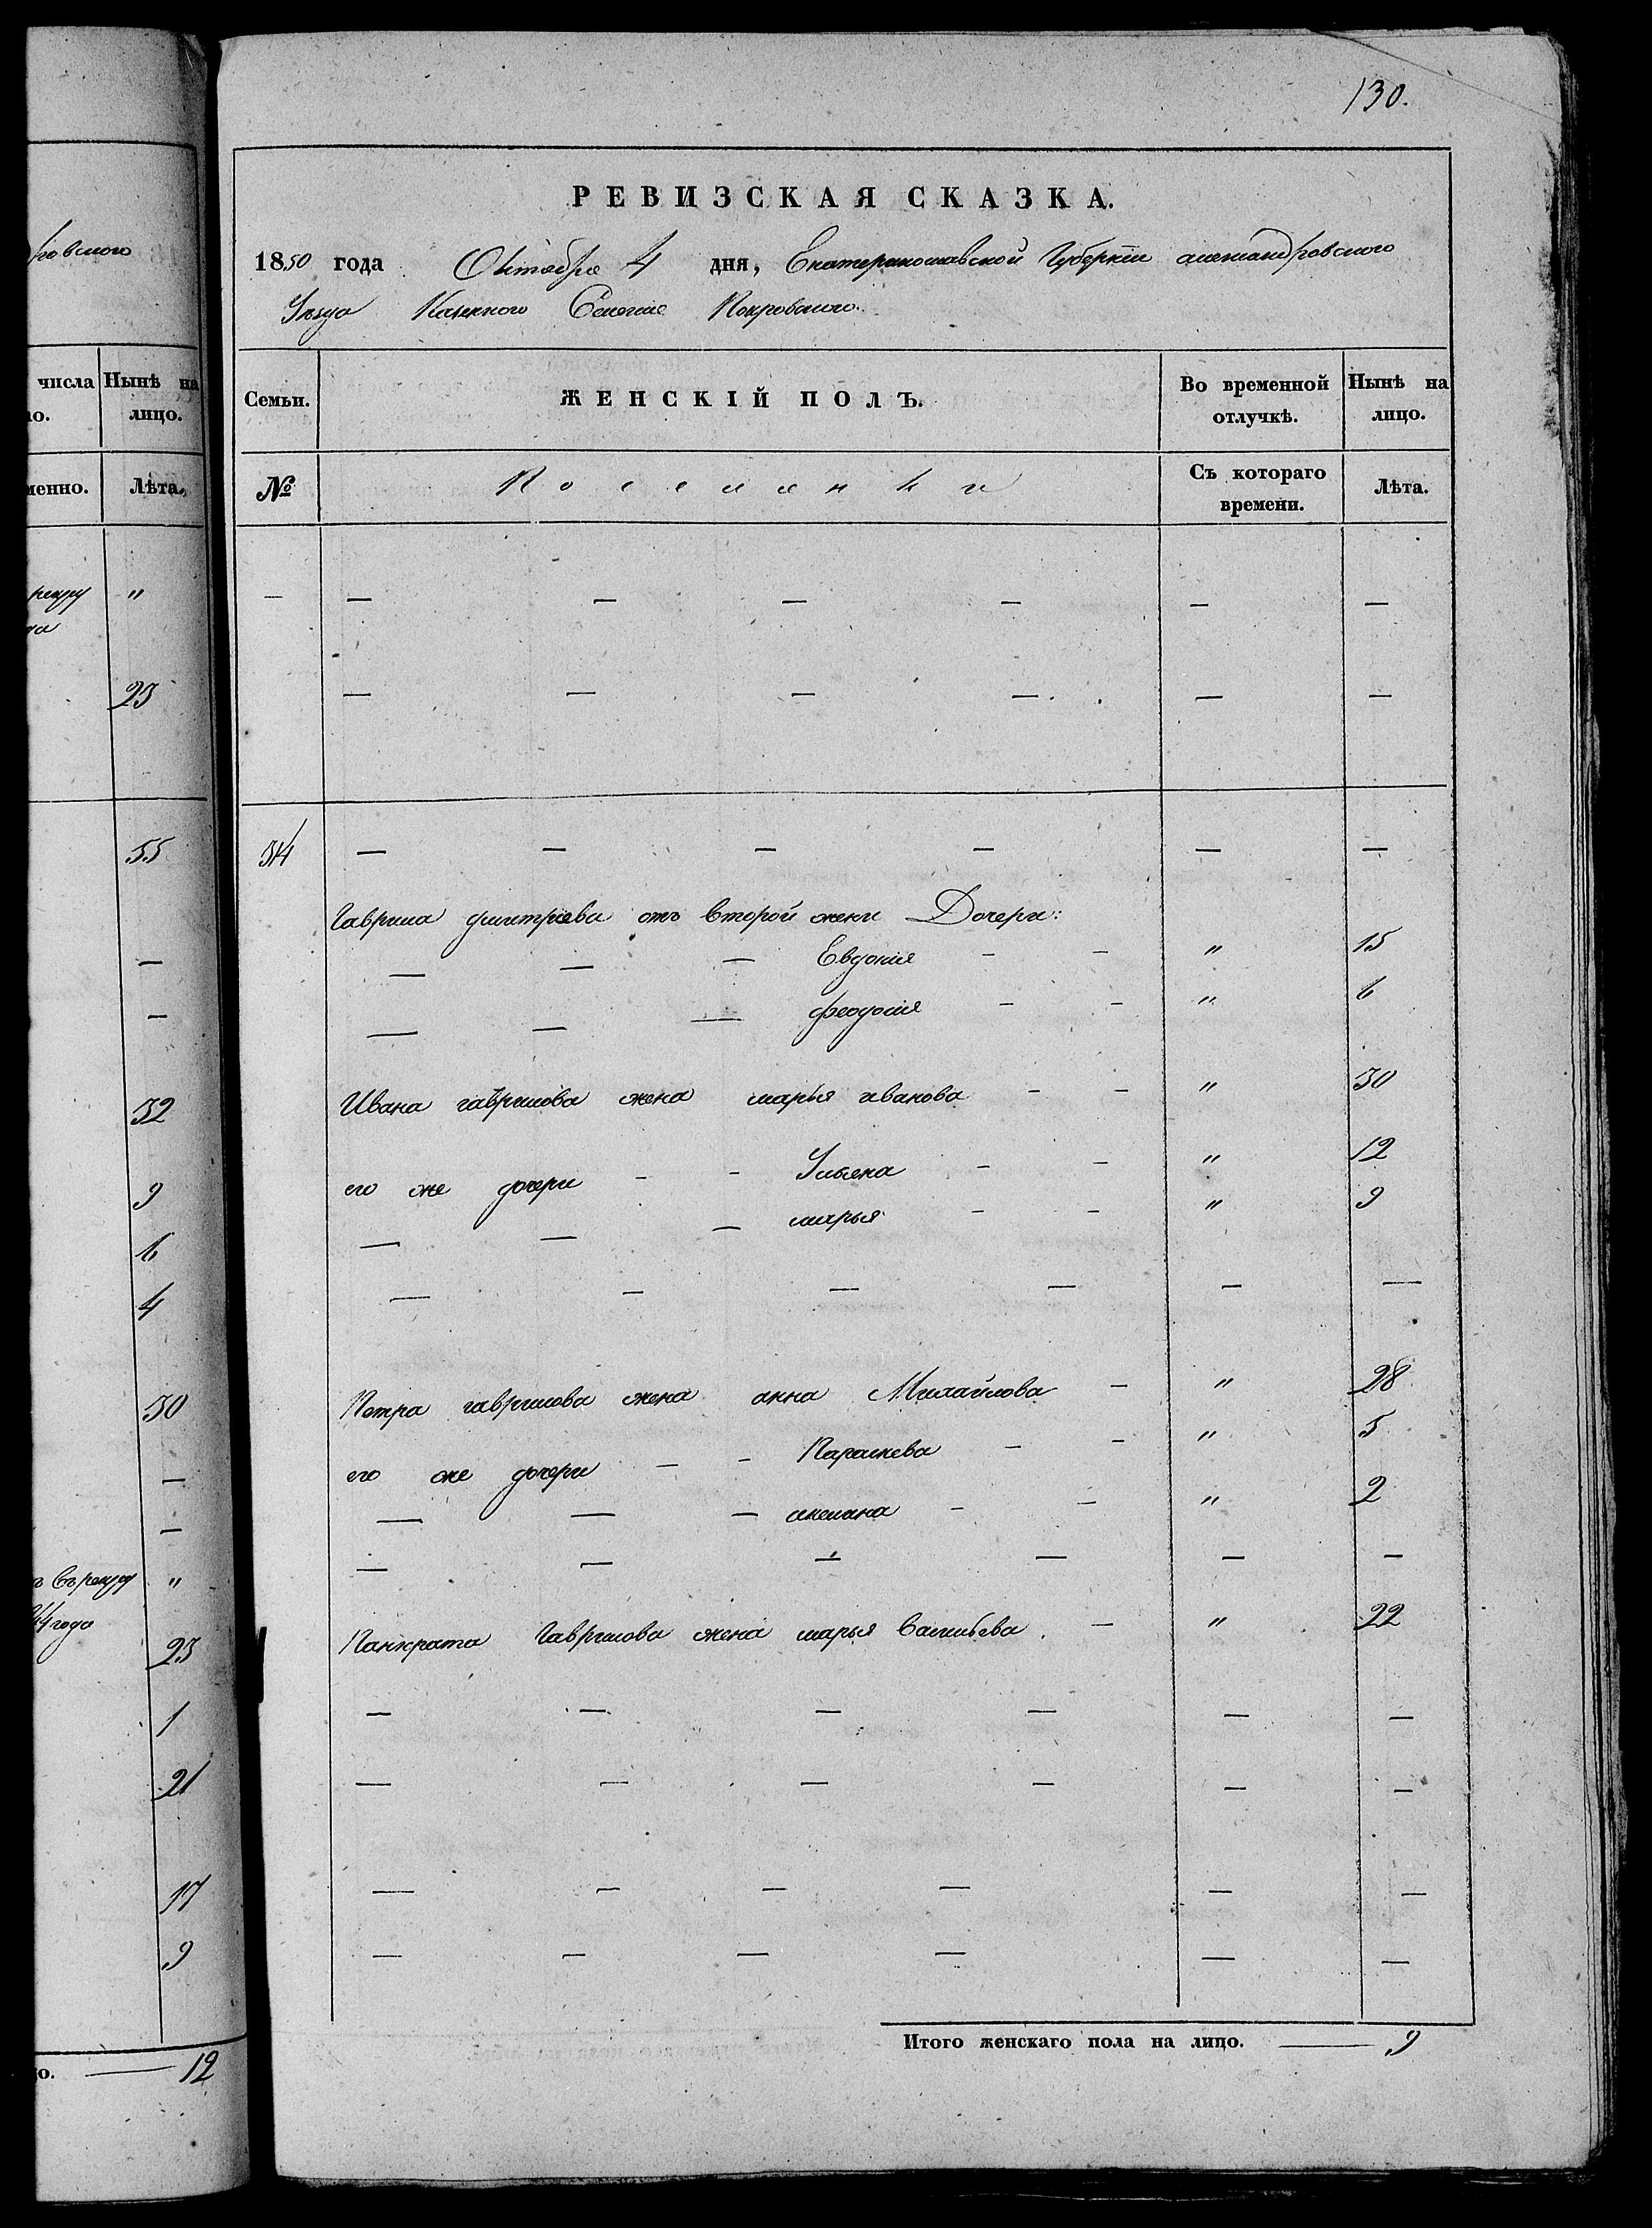 ровского
числа Нынѣ на
но. лицо.
менно. Лѣта.
рекру "
та
23
55
—
—
32
9
6
4
30
—
—
въ рекру "
44 года
23
1
21
17
9
о. — 12
130.
РЕВИЗСКАЯ СКАЗКА.
1850 года Октября 4 дня, Екатеринославской Губернiи александровского
Уѣзда Казенного Селенiя Покровского.
Семьи. ЖЕНСКІЙ ПОЛЪ. Во временной отлучкѣ. Нынѣ на лицо.
№ Поселянки Съ котораго времени. Лѣта.
— — — — — — —
— — — — — —
34 — — — — — —
Гаврила дмитрiева отъ второй жены Дочери:
— — — Евдокiя — — " 15
— — — феодосiя — — " 6
Ивана гаврилова жена марья иванова — — " 30
его же дочери — — Ульяна — — " 12
— — — марья — — " 9
— — — — — —
Петра гаврилова жена анна Михайлова — " 28
его же дочери — — Параскева — — " 5
— — — акелина — — " 2
— — — — — —
Панкрата Гаврилова жена марья Васильева. — " 22
— — — — — —
— — — — — —
— — — — — —
— — — — — —
Итого женскаго пола на лицо. — 9